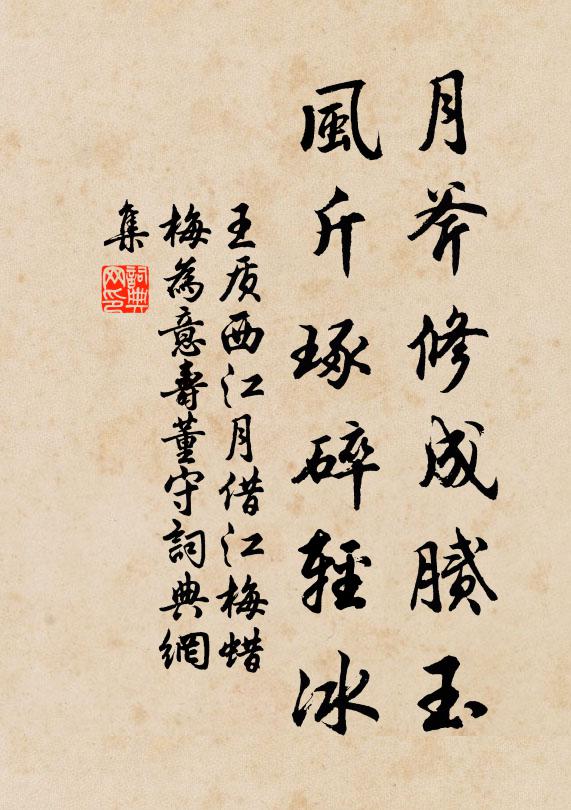 月斧修成膩玉
風斤琢碎輕冰
王质西江月借江梅蜡
梅為意壽董守詞典網
集
詞典
网印